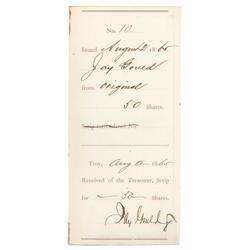 No. 10
Issued August 2 1865
Jay Gould
from original
50 Shares.
Scrip surrendered No.
Troy, Aug 2 1865
Received of the Treasurer, Scrip
for — 50 — Shares.
Jay Gould